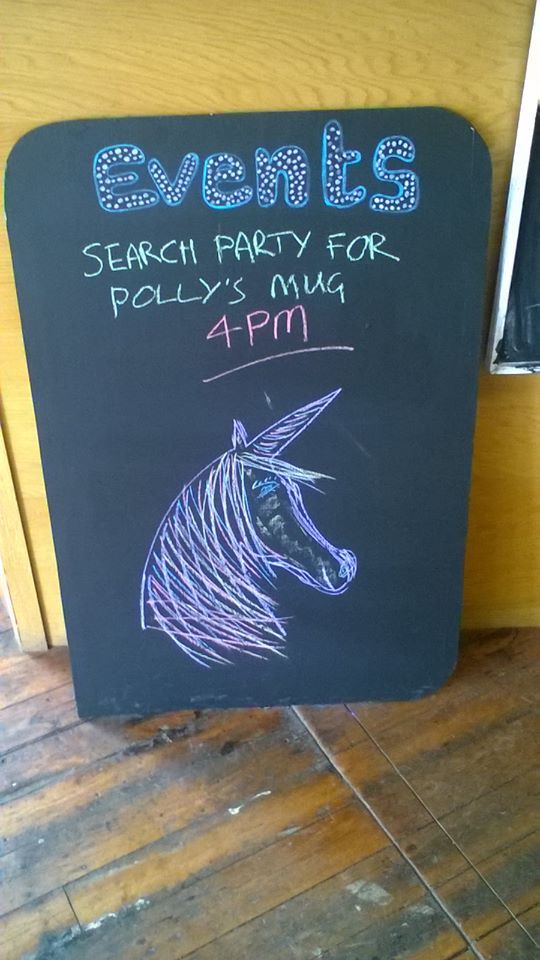 Events
SEARCH PARTY FOR
POLLY'S MUG
4PM